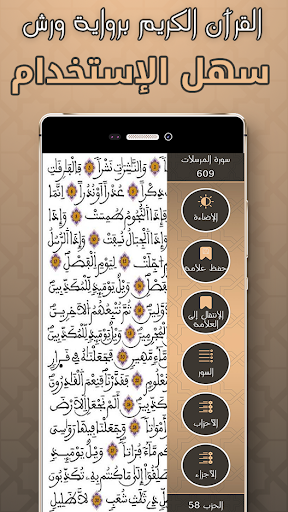 القرآن الكريم برواية ورش
سهل الإستخدام
سورة المرسلات
609
وَالنَّٰشِرَٰتِ نَشْراً فَالْفَٰرِقَٰتِ
ذِكْراً عُذْراً أَوْ نُذُراً إِنَّمَا
فَإِذَا النُّجُومُ طُمِسَتْ وَإِذَا
وَإِذَا الْجِبَالُ نُسِفَتْ وَإِذَا الرُّسُلُ
لِيَوْمِ الْفَصْلِ
وَيْلٌ يَوْمَئِذٍ لِّلْمُكَذِّبِينَ
ثُمَّ نُتْبِعُهُمُ الْأَخِرِينَ
بِالْمُجْرِمِينَ وَيْلٌ يَوْمَئِذٍ لِّلْمُكَذِّ
مَّآءٍ مَّهِينٍ فَجَعَلْنَٰهُ فِي قَرَارٍ
مَّعْلُومٍ فَقَدَّرْنَا فَنِعْمَ الْقَٰدِرُونَ
لِّلْمُكَذِّبِينَ أَلَمْ نَجْعَلِ الْأَرْضَ
وَأَمْوَٰتاً وَجَعَلْنَا فِيهَا رَوَٰسِيَ
كُم مَّآءً فُرَاتاً وَيْلٌ يَوْمَئِذٍ
انطَلِقُوا إِلَىٰ مَا كُنتُم بِهِ تُكَذِّبُونَ
ظِلٍّ ذِي ثَلَٰثِ شُعَبٍ لَّا ظَلِيلٍ
الإضاءة
حفظ علامة
الإنتقال إلى العلامة
السور
الأحزاب
الأجزاء
الحزب 58